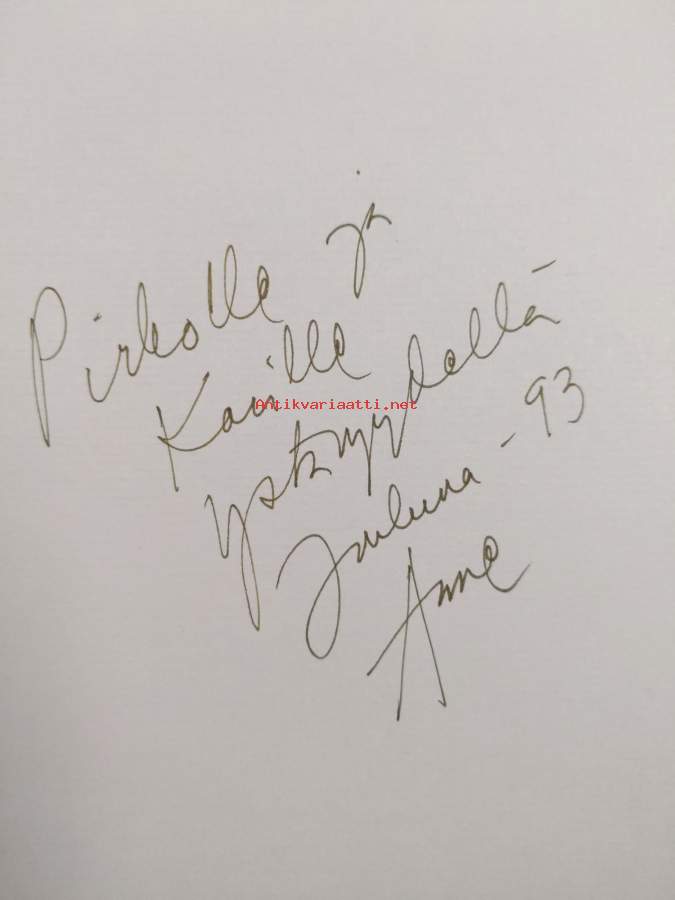 Pirkolle ja
Karille
ystävyydellä
Jouluna -93
Anne
Antikvariaatti.net